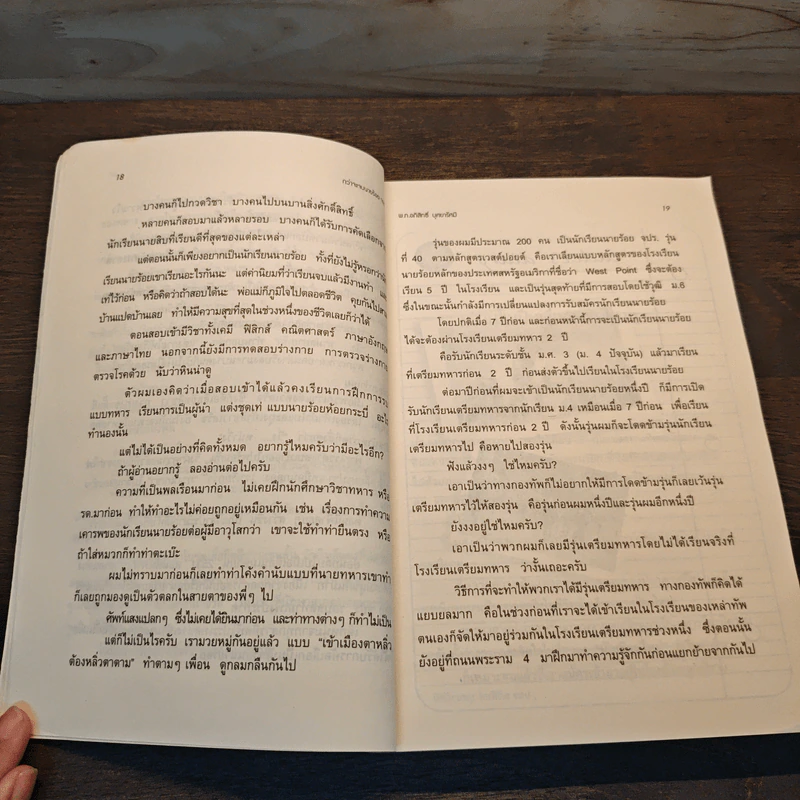 18
บางคนก็ไปกวดวิชา บางคนไปบนบานสิ่งศักดิ์สิทธิ์
หลายคนก็สอบมาแล้วหลายรอบ บางคนก็ได้รับการคัดเลือกจาก
นักเรียนนายสิบที่เรียนดีที่สุดของแต่ละเหล่า
แต่ตอนนั้นก็เพียงอยากเป็นนักเรียนนายร้อย ทั้งที่ยังไม่รู้หรอกว่า
เรียนนายร้อยเขาเรียนอะไรกันนะ แต่ค่านิยมที่ว่าเรียนจบแล้วมีงานทำ
เท่ไว้ก่อน หรือคิดว่าถ้าสอบได้นะ พ่อแม่ก็ภูมิใจไปตลอดชีวิต คุยกันไป
บ้านแปดบ้านเลย ทำให้มีความสุขที่สุดในช่วงหนึ่งของชีวิตเลยก็ว่าได้
ตอนสอบเข้ามีวิชาทั้งเคมี ฟิสิกส์ คณิตศาสตร์ ภาษาอังกฤษ
และภาษาไทย นอกจากนี้ยังมีการทดสอบร่างกาย การตรวจร่างกาย
ตรวจโรคด้วย นับว่าหินน่าดู
ตัวผมเองคิดว่าเมื่อสอบเข้าได้แล้วคงเรียนการฝึกการรบ
แบบทหาร เรียนการเป็นผู้นำ แต่งชุดเท่ แบบนายร้อยห้อยกระบี่ อะไร
ทำนองนั้น
แต่ไม่ได้เป็นอย่างที่คิดทั้งหมด อยากรู้ไหมครับว่ามีอะไรอีก?
ถ้าผู้อ่านอยากรู้ ลองอ่านต่อไปครับ
ความที่เป็นพลเรือนมาก่อน ไม่เคยฝึกนักศึกษาวิชาทหาร หรือ
รด.มาก่อน ทำให้ทำอะไรไม่ค่อยถูกอยู่เหมือนกัน เช่น เรื่องการทำความ
เคารพของนักเรียนนายร้อยต่อผู้มีอาวุโสกว่า เขาจะใช้ทำท่ายืนตรง หรือ
ถ้าใส่หมวกก็ทำท่าตะเบ๊ะ
ผมไม่ทราบมาก่อนก็เลยทำท่าโค้งคำนับแบบที่นายทหารเขาทำ
ก็เลยถูกมองดูเป็นตัวตลกในสายตาของพี่ๆ ไป
ศัพท์แสงแปลกๆ ซึ่งไม่เคยได้ยินมาก่อน และท่าทางต่างๆ ก็ทำไม่เป็น
แต่ก็ไม่เป็นไรครับ เรามวยหมู่กันอยู่แล้ว แบบ “เข้าเมืองตาหลิ่ว
ต้องหลิ่วตาตาม” ทำตามๆ เพื่อน ดูกลมกลืนกันไป
19
รุ่นของผมมีประมาณ 200 คน เป็นนักเรียนนายร้อย จปร. รุ่น
ที่ 40 ตามหลักสูตรเวสต์ปอยต์ คือเราเลียนแบบหลักสูตรของโรงเรียน
นายร้อยหลักของประเทศสหรัฐอเมริกาที่ชื่อว่า West Point ซึ่งจะต้อง
เรียน 5 ปี ในโรงเรียน และเป็นรุ่นสุดท้ายที่มีการสอบโดยใช้วุฒิ ม.6
ซึ่งในขณะนั้นกำลังมีการเปลี่ยนแปลงการรับสมัครนักเรียนนายร้อย
โดยปกติเมื่อ 7 ปีก่อน และก่อนหน้านี้การจะเป็นนักเรียนนายร้อย
ได้จะต้องผ่านโรงเรียนเตรียมทหาร 2 ปี
คือรับนักเรียนระดับชั้น ม.ศ. 3 (ม. 4 ปัจจุบัน) แล้วมาเรียน
ที่เตรียมทหารก่อน 2 ปี ก่อนส่งตัวขึ้นไปเรียนในโรงเรียนนายร้อย
ต่อมาปีก่อนที่ผมจะเข้าเป็นนักเรียนนายร้อยหนึ่งปี ก็มีการเปิด
รับนักเรียนเตรียมทหารจากนักเรียน ม.4 เหมือนเมื่อ 7 ปีก่อน เพื่อเรียน
ที่โรงเรียนเตรียมทหารก่อน 2 ปี ดังนั้นรุ่นผมก็จะโดดข้ามรุ่นนักเรียน
เตรียมทหารไป คือหายไปสองรุ่น
ฟังแล้วงงๆ ใช่ไหมครับ?
เอาเป็นว่าทางกองทัพก็ไม่อยากให้มีการโดดข้ามรุ่นก็เลยเว้นรุ่น
เตรียมทหารไว้ให้สองรุ่น คือรุ่นก่อนผมหนึ่งปีและรุ่นผมอีกหนึ่งปี
ยังงงอยู่ใช่ไหมครับ?
เอาเป็นว่าพวกผมก็เลยมีรุ่นเตรียมทหารโดยไม่ได้เรียนจริงที่
โรงเรียนเตรียมทหาร ว่างั้นเถอะครับ
วิธีการที่จะทำให้พวกเราได้มีรุ่นเตรียมทหาร ทางกองทัพก็คิดได้
แยบยลมาก คือในช่วงก่อนที่เราจะได้เข้าเรียนในโรงเรียนของเหล่าทัพ
ตนเองก็จัดให้มาอยู่ร่วมกันในโรงเรียนเตรียมทหารช่วงหนึ่ง ซึ่งตอนนั้น
ยังอยู่ที่ถนนพระราม 4 มาฝึกมาทำความรู้จักกันก่อนแยกย้ายจากกันไป